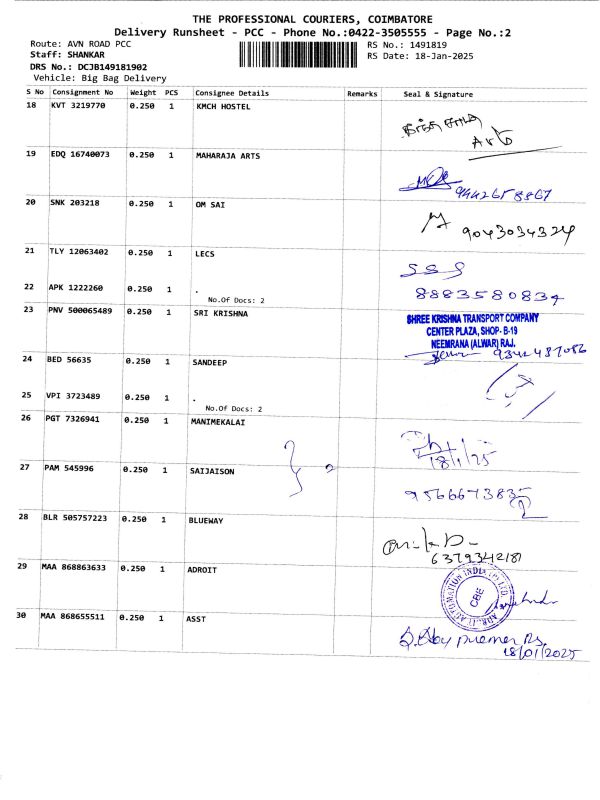 THE PROFESSIONAL COURIERS, COIMBATORE
Delivery Runsheet - PCC - Phone No.:0422-3505555 - Page No.:2
Route: AVN ROAD PCC RS No.: 1491819
Staff: SHANKAR RS Date: 18-Jan-2025
DRS No.: DCJB149181902
Vehicle: Big Bag Delivery
S No Consignment No Weight PCS Consignee Details Remarks Seal & Signature
18 KVT 3219770 0.250 1 KMCH HOSTEL
19 EDQ 16740073 0.250 1 MAHARAJA ARTS
9442658867
20 SNK 203218 0.250 1 OM SAI
9043034324
21 TLY 12063402 0.250 1 LECS
22 APK 1222260 0.250 1 .
No.Of Docs: 2
8883580834
23 PNV 500065489 0.250 1 SRI KRISHNA
SHREE KRISHNA TRANSPORT COMPANY
CENTER PLAZA, SHOP- B-19
NEEMRANA (ALWAR) RAJ.
24 BED 56635 0.250 1 SANDEEP
25 VPI 3723489 0.250 1 .
No.Of Docs: 2
26 PGT 7326941 0.250 1 MANIMEKALAI
18/1/25
27 PAM 545996 0.250 1 SAIJAISON
28 BLR 505757223 0.250 1 BLUEWAY
6379342181
29 MAA 868863633 0.250 1 ADROIT
CBE
30 MAA 868655511 0.250 1 ASST
18/01/2025